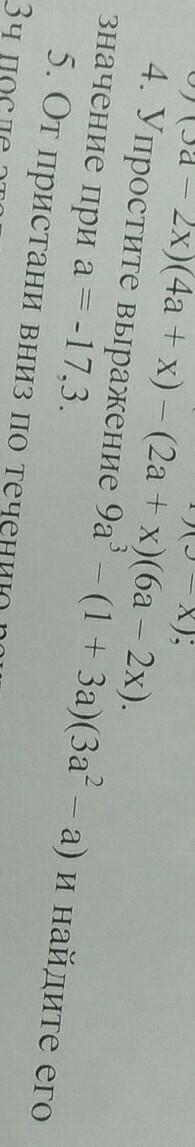 (3а – 2х)(4а + х) – (2а + х)(6а – 2х).
4. Упростите выражение 9а³ – (1 + 3а)(3а² – а) и найдите его
значение при а = -17,3.
5. От пристани вниз по течению
3ч после